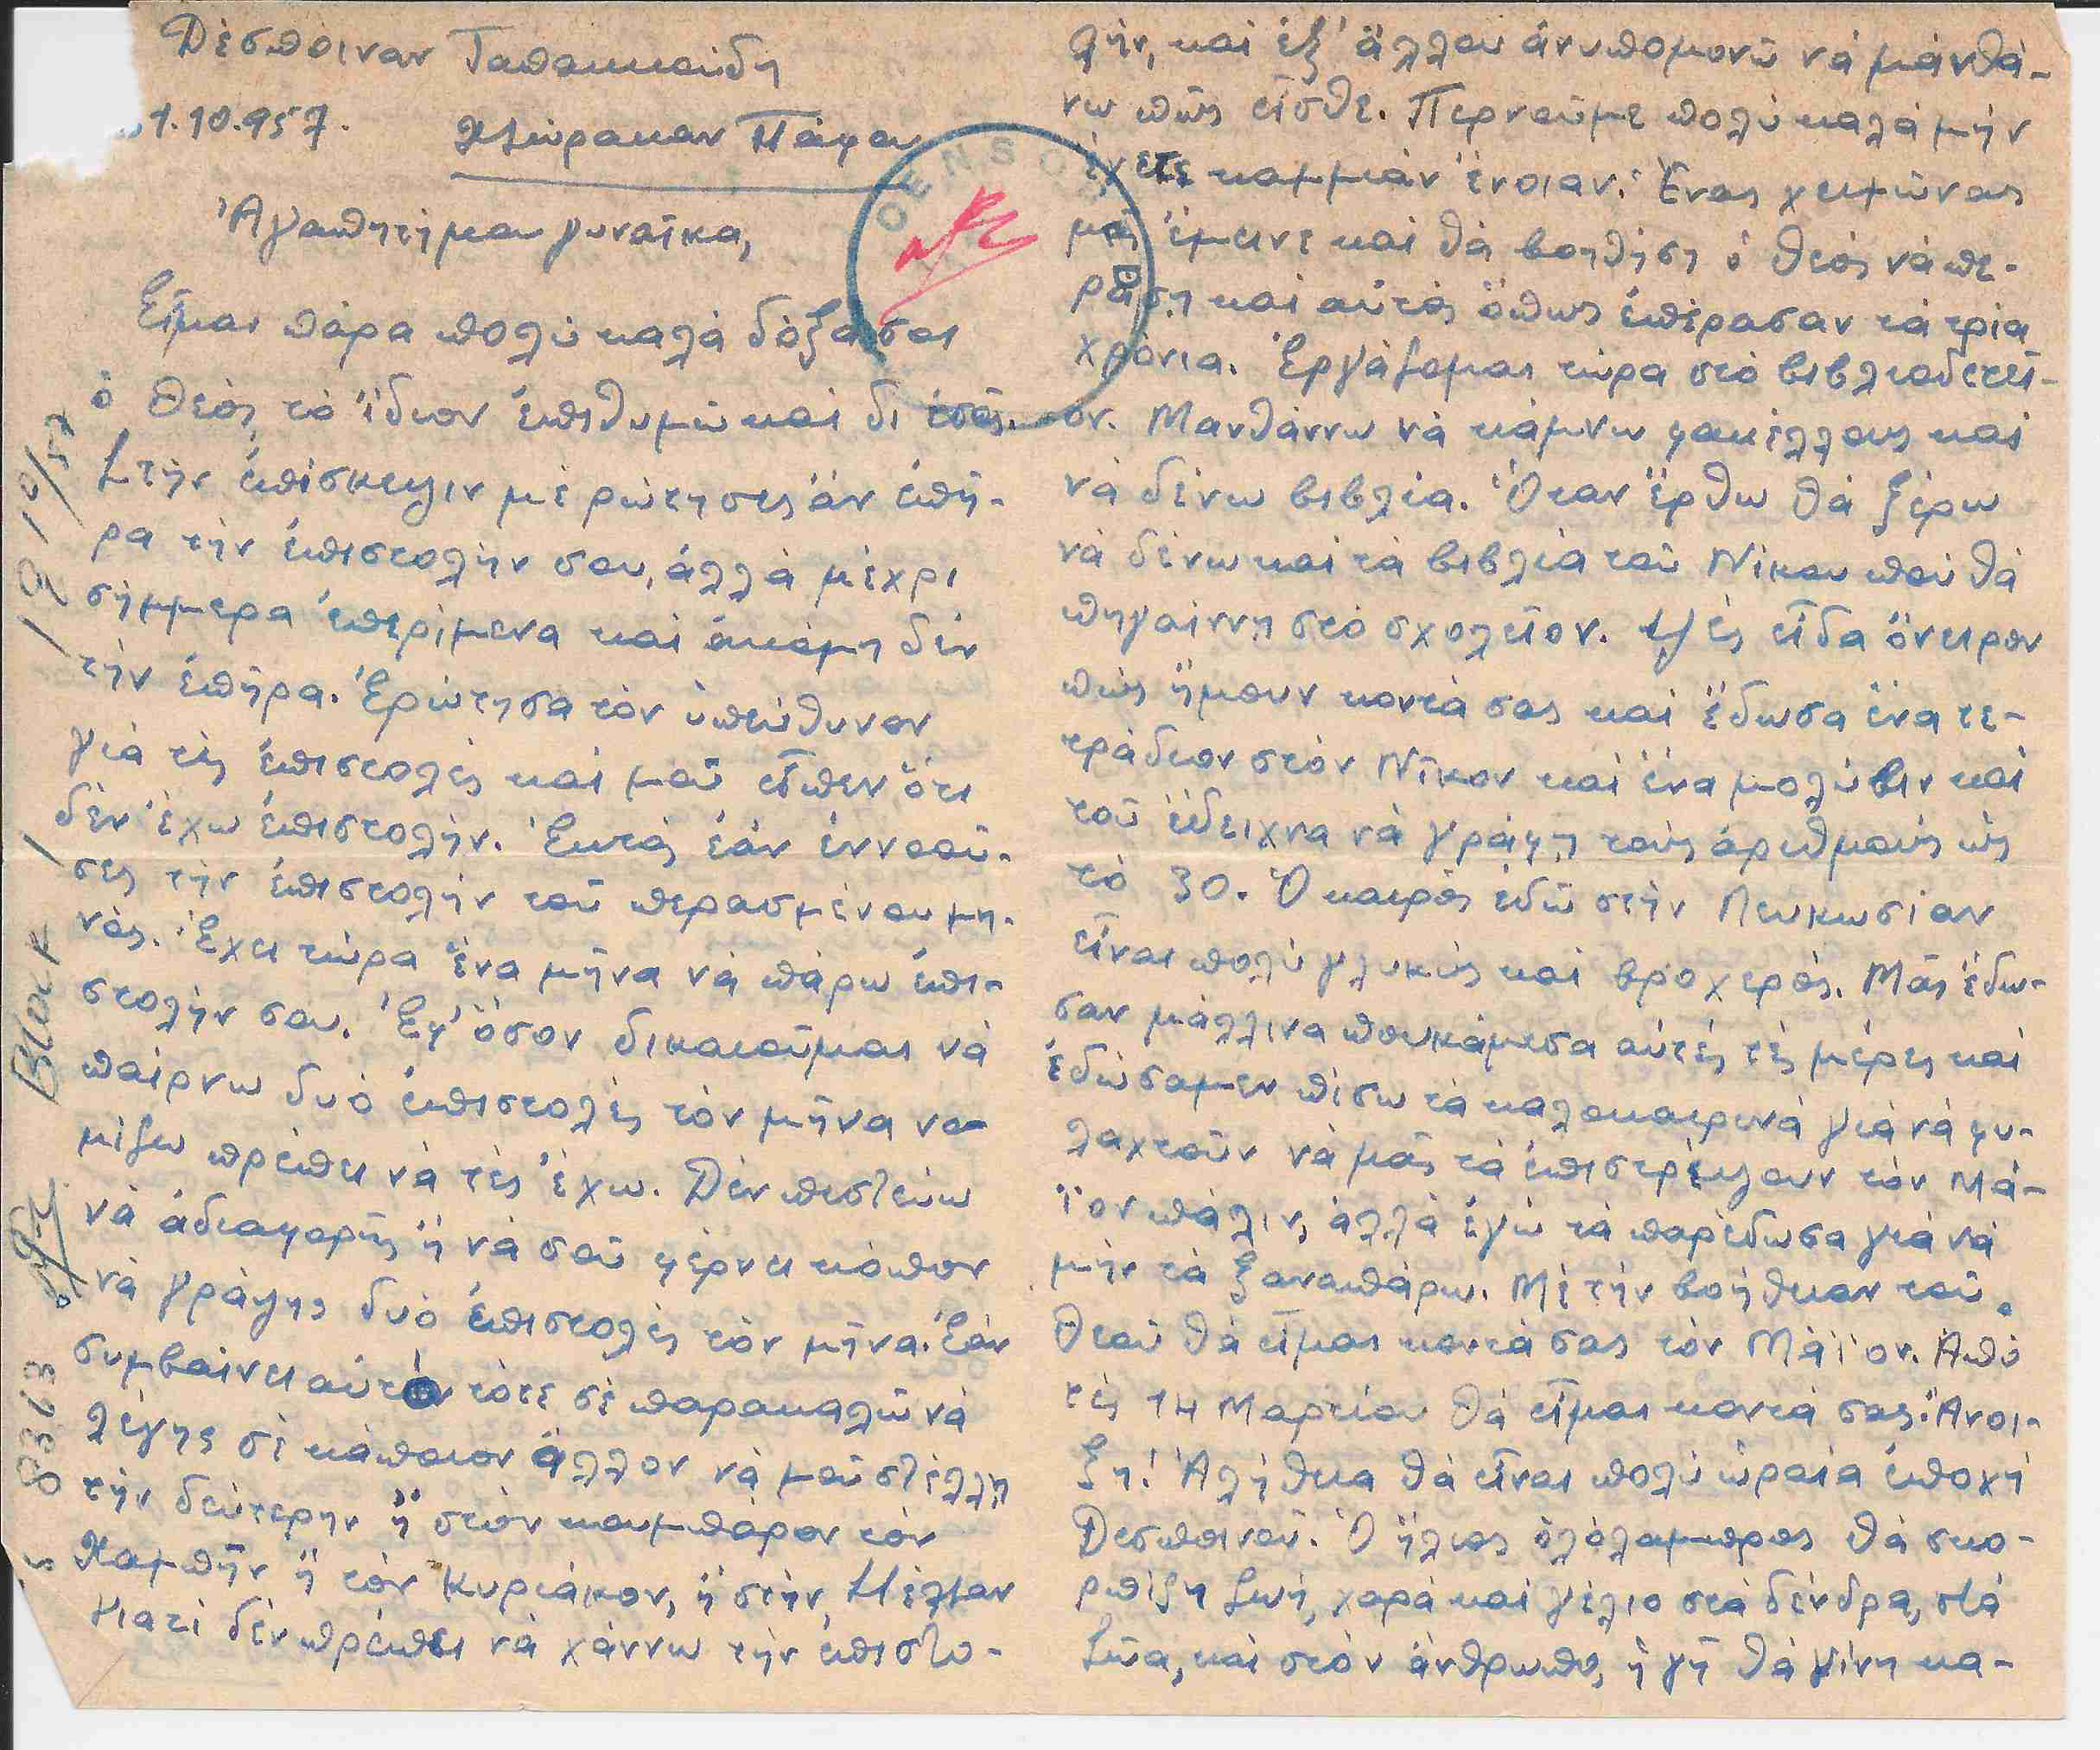 Δέσποιναν Παπακκούδη
1.10.957.
Χλώρακαν Πάφου
Ἀγαπητή μου γυναῖκα,
Εἶμαι πάρα πολύ καλά δόξα σοι
ὁ Θεός, τό ἴδιον ἐπιθυμῶ καί δι ἐσᾶς.
Στήν ἐπίσκεψιν μέ ρώτησες ἄν ἐπῆ-
ρα τήν ἐπιστολήν σου, ἀλλά μέχρι
σήμμερα ἐπερίμενα καί ἀκόμη δέν
τήν ἐπῆρα. Ἐρώτησα τόν ὑπεύθυνον
γιά τές ἐπιστολές καί μοῦ εἶπεν ὅτι
δέν ἔχω ἐπιστολήν. Ἐκτός ἐάν ἐννοοῦ-
σες τήν ἐπιστολήν τοῦ περασμένου μη-
νός. Ἔχει τώρα ἕνα μῆνα νά πάρω ἐπι-
στολήν σου. Ἐφ' ὅσον δικαιοῦμαι νά
παίρνω δυό ἐπιστολές τόν μῆνα νο-
μίζω πρέπει νά τές ἔχω. Δέν πιστεύω
νά ἀδιαφορῆς ἤ νά σοῦ φέρνει κόπον
νά γράψης δυό ἐπιστολές τόν μῆνα. Ἐάν
συμβαίνει αὐτό τότε σέ παρακαλῶ νά
λέγης σέ κάποιον ἄλλον νά μοῦ στέλλη
τήν δεύτερην ἤ στόν κουμπάρον τόν
Χαμπῆν ἤ τόν Κυριάκον, ἤ στήν Μέλπαν
Γιατί δέν πρέπει νά χάννω τήν ἐπιστο-
λήν, καί ἐξ' ἄλλου ἀνυπομονῶ νά μανθά-
νω πῶς εἶσθε. Περνοῦμε πολύ καλά μήν
ἔχετε καμμιάν ἔνοιαν. Ἕνας χειμώνας
μᾶς ἔμεινε καί θά βοηθήση ὁ Θεός νά πε-
ράση καί αὐτός ὅπως ἐπέρασαν τά τρία
χρόνια. Ἐργάζομαι τώρα στό βιβλιοδετεῖ-
ον. Μανθάννω νά κάμνω φακέλλους καί
νά δένω βιβλία. Ὅταν ἔρθω θά ξέρω
νά δένω καί τά βιβλία τοῦ Νίκου πού θά
πηγαίννη στό σχολεῖον. Ψές εἶδα ὄνειρον
πώς ἤμουν κοντά σας καί ἔδωσα ἕνα τε-
τράδιον στόν Νῖκον καί ἕνα μολύβιν καί
τοῦ ἔδειχνα νά γράφη τούς ἀριθμούς ὡς
τό 30. Ὁ καιρός ἐδῶ στήν Λευκωσίαν
εἶναι πολύ γλυκύς καί βροχερός. Μᾶς ἔδω-
σαν μάλλινα πουκάμισα αὐτές τές μέρες καί
ἐδώσαμεν πίσω τά καλοκαιρινά γιά νά φυ-
λαχτοῦν νά μᾶς τά ἐπιστρέψουν τόν Μά-
ϊον πάλιν, ἀλλά ἐγώ τά παρέδωσα γιά νά
μήν τά ξαναπάρω. Μέ τήν βοήθειαν τοῦ
Θεοῦ θά εἶμαι κοντά σας τόν Μάϊον. Ἀπό
τές 14 Μαρτίου θά εἶμαι κοντά σας. Ἄνοι-
ξη! Ἀλήθεια θά εἶναι πολύ ὡραία ἐποχή
Δεσποινοῦ. Ὁ ἥλιος ὁλόλαμπρος θά σκο-
ρπίζη ζωή, χαρά καί γέλιο στά δένδρα, στά
ζῶα, καί στόν ἄνθρωπο, ἡ γῆ θά γίνη κα-
8363
Block
1 9 10/57
CENSO
D